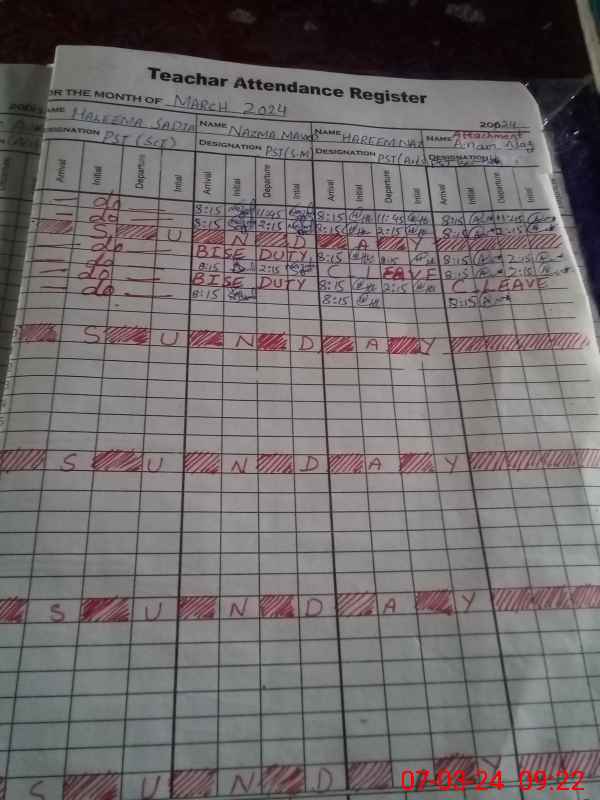 Teachar Attendance Register
OR THE MONTH OF MARCH 2024
20024
NAME HALEEMA SADIA NAME NAZMA NAME HAREEM NAZ NAME Attachment
DESIGNATION PST (Sci) DESIGNATION PST (S.M) DESIGNATION PST (Arts) DESIGNATION
Arrival Initial Departure Initial Arrival Initial Departure Initial Arrival Initial Departure Initial Arrival Initial Departure Initial
— do — 8:15 11:45 8:15 11:45 8:15 11:45
— do — 8:15 2:15 8:15 2:15 8:15 2:15
S U N D A Y
— do — BISE DUTY 8:15 8:15 2:15
— do — 8:15 2:15 C LEAVE 8:15 2:15
— do — BISE DUTY 8:15 2:15 C. LEAVE
8:15 8:15 8:15
S U N D A Y
S U N D A Y
S U N D A Y
S U N D
07-03-24 09:22